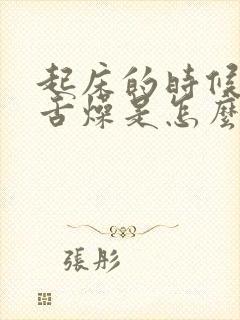 起床的時候
舌燥是怎麼
張彤